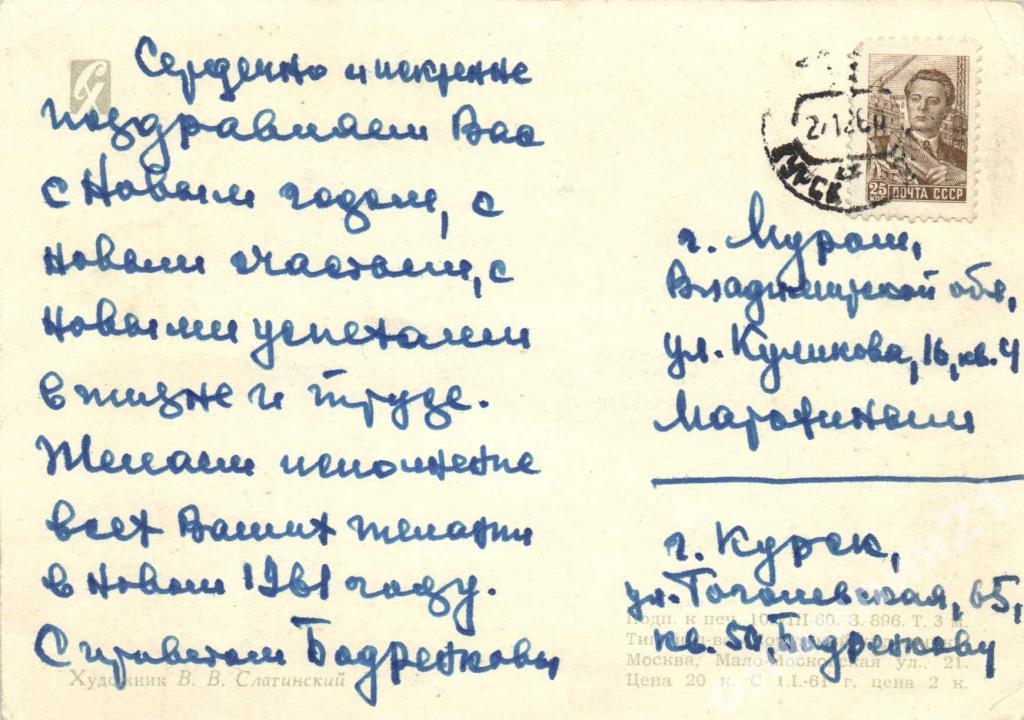 Сердечно и искренне
поздравляем Вас
с Новым годом, с
новым счастьем, с
новыми успехами
в жизни и труде.
Желаем исполнение
всех Ваших желаний
в новом 1961 году.
С приветом Бодрежковы
Художник В. В. Слатинский
КУРСК
25 КОП ПОЧТА СССР
г. Муром,
Владимирской обл,
ул. Куликова, 16, кв. 4
Марахиным
г. Курск,
ул. Гоголевская, 65,
кв. 50, Бодрежкову
Подп. к печ. З. 896. Т. 3 м.
Москва, Мало-Московская ул., 21.
Цена 20 к. С 1.I.-61 г. цена 2 к.